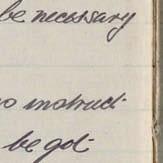 be necessary
instruct
be got